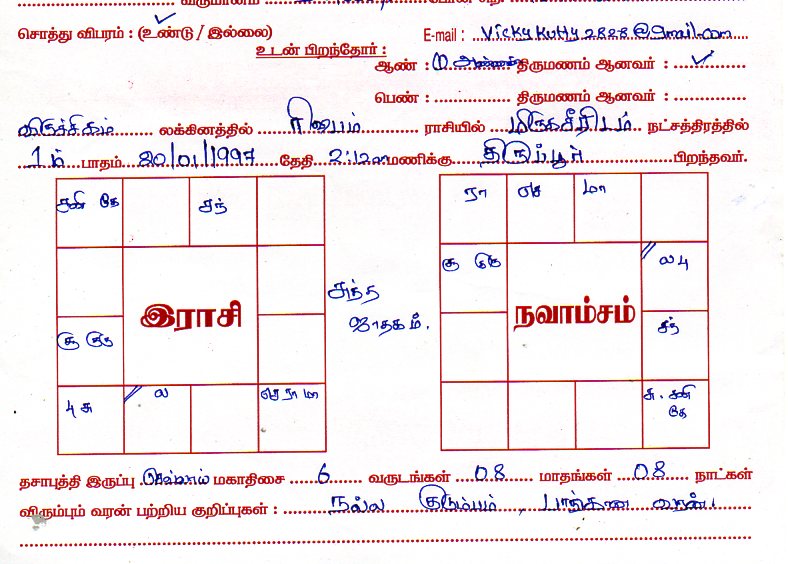 சொத்து விபரம் : (உண்டு / இல்லை) E-mail : Vickykutty2828@gmail.com
உடன் பிறந்தோர் :
ஆண் : (1) திருமணம் ஆனவர் :
பெண் : திருமணம் ஆனவர் :
விருச்சிகம் லக்கினத்தில் ரிஷபம் ராசியில் மிருகசீரிடம் நட்சத்திரத்தில்
1ம் பாதம் 20/01/1997 தேதி 2:12am மணிக்கு திருப்பூர் பிறந்தவர்.
சனி கே சந் ரா செ மா
சூ குரு ல பு
இராசி சுத்த நவாம்சம்
ஜாதகம்.
சூ குரு சந்
பு சு ல செ ரா மா சு . சனி
கே
தசாபுத்தி இருப்பு செவ்வாய் மகாதிசை 6 வருடங்கள் 08 மாதங்கள் 08 நாட்கள்
விரும்பும் வரன் பற்றிய குறிப்புகள் : நல்ல குடும்பம்,